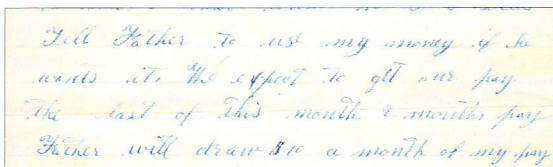 Tell Father to use my money if he
wants it. We expect to get our pay
the last of this month 2 months pay
Father will draw $10 a month of my pay